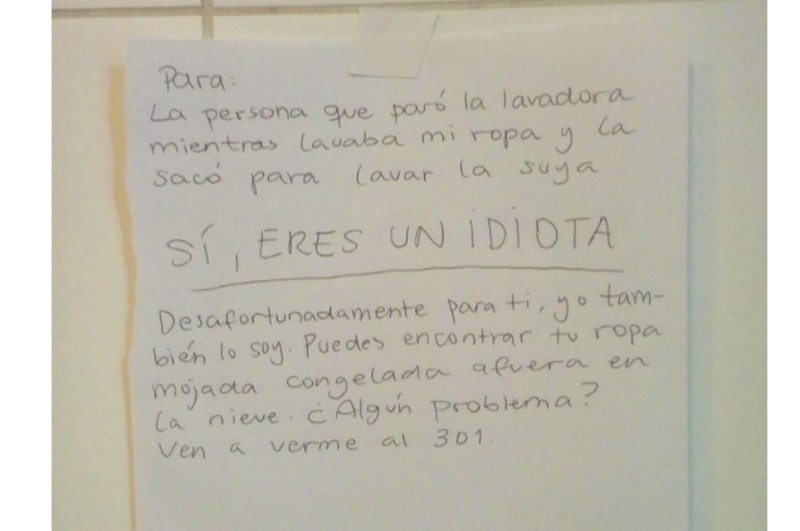 Para:
La persona que paró la lavadora
mientras lavaba mi ropa y la
sacó para lavar la suya
SÍ, ERES UN IDIOTA
Desafortunadamente para ti, yo tam-
bién lo soy. Puedes encontrar tu ropa
mojada congelada afuera en
la nieve. ¿Algún problema?
Ven a verme al 301.